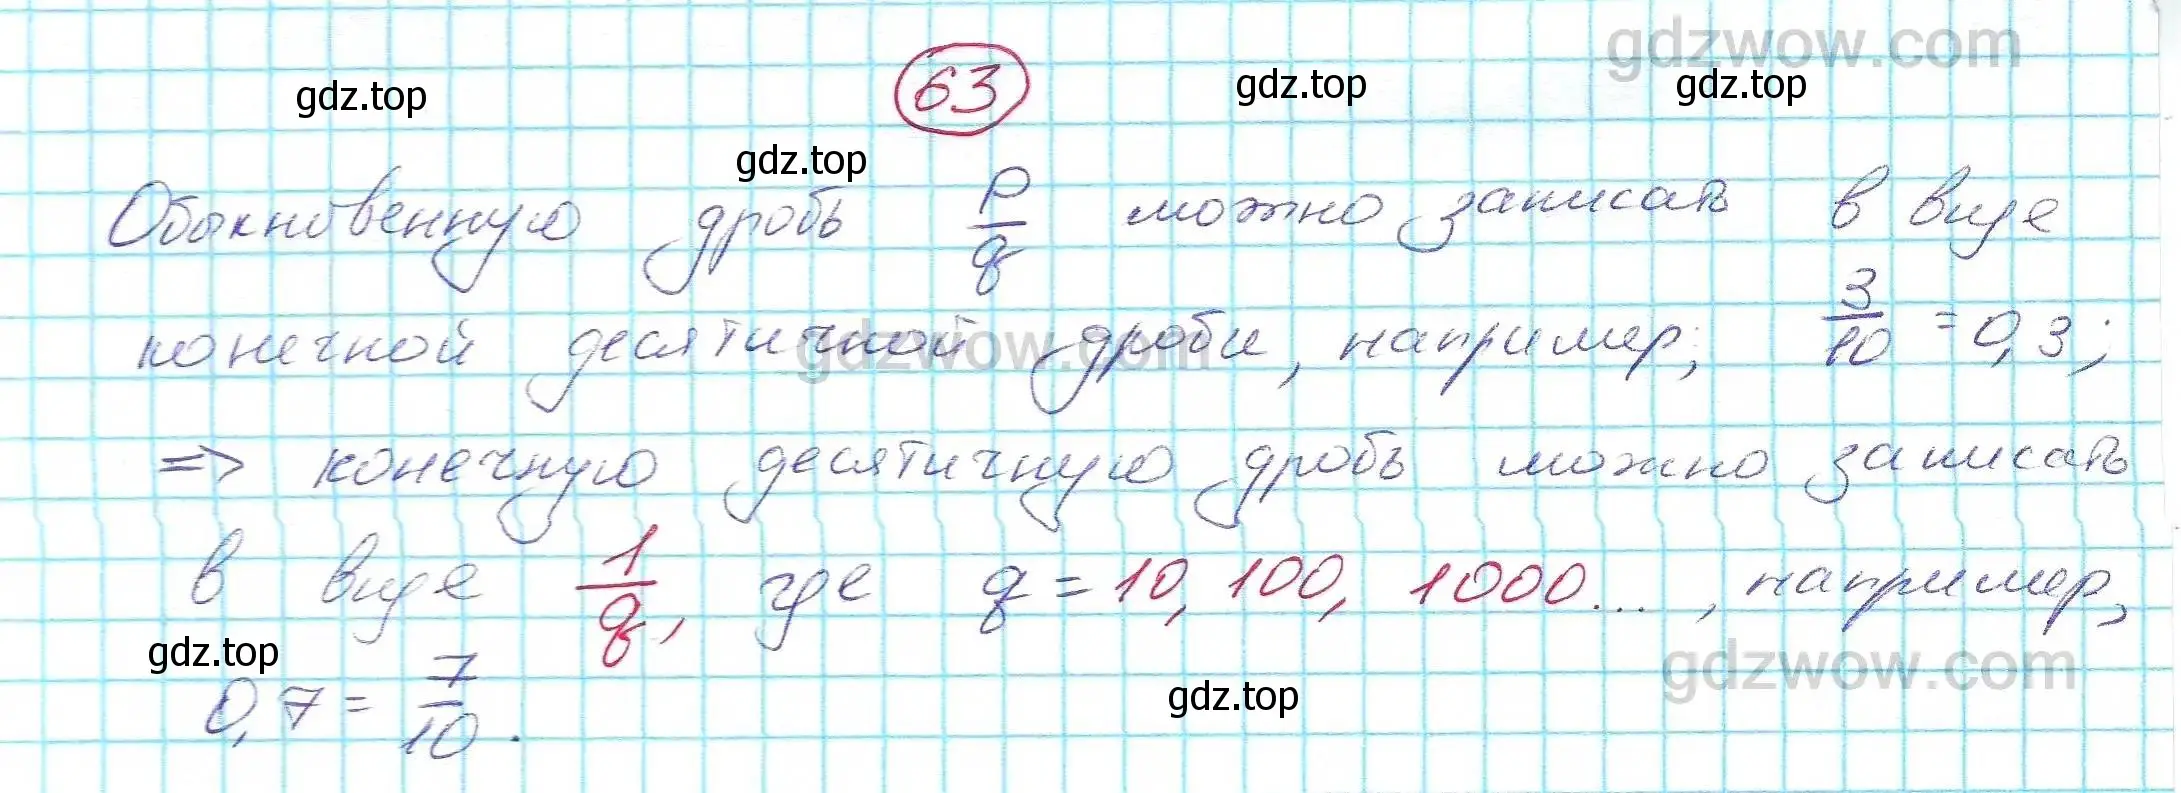 gdzwow.com
63
gdz.top gdz.top gdz.top
gdz.top
Обыкновенную дробь p/q можно записать в виде
конечной десятичной дроби, например, 3/10 = 0,3;
gdzwow.com
=> конечную десятичную дробь можно записать
в виде 1/q, где q = 10, 100, 1000... , например,
gdz.top gdzwow.com
0,7 = 7/10.
gdz.top